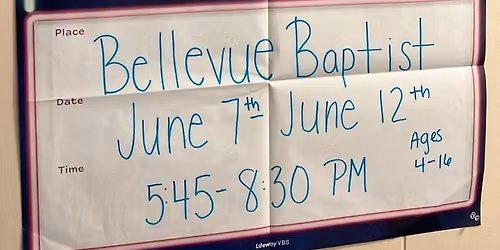 Place
Bellevue Baptist
Date
June 7th June 12th
Ages
4-16
Time
5:45-8:30 PM
Lifeway VBS